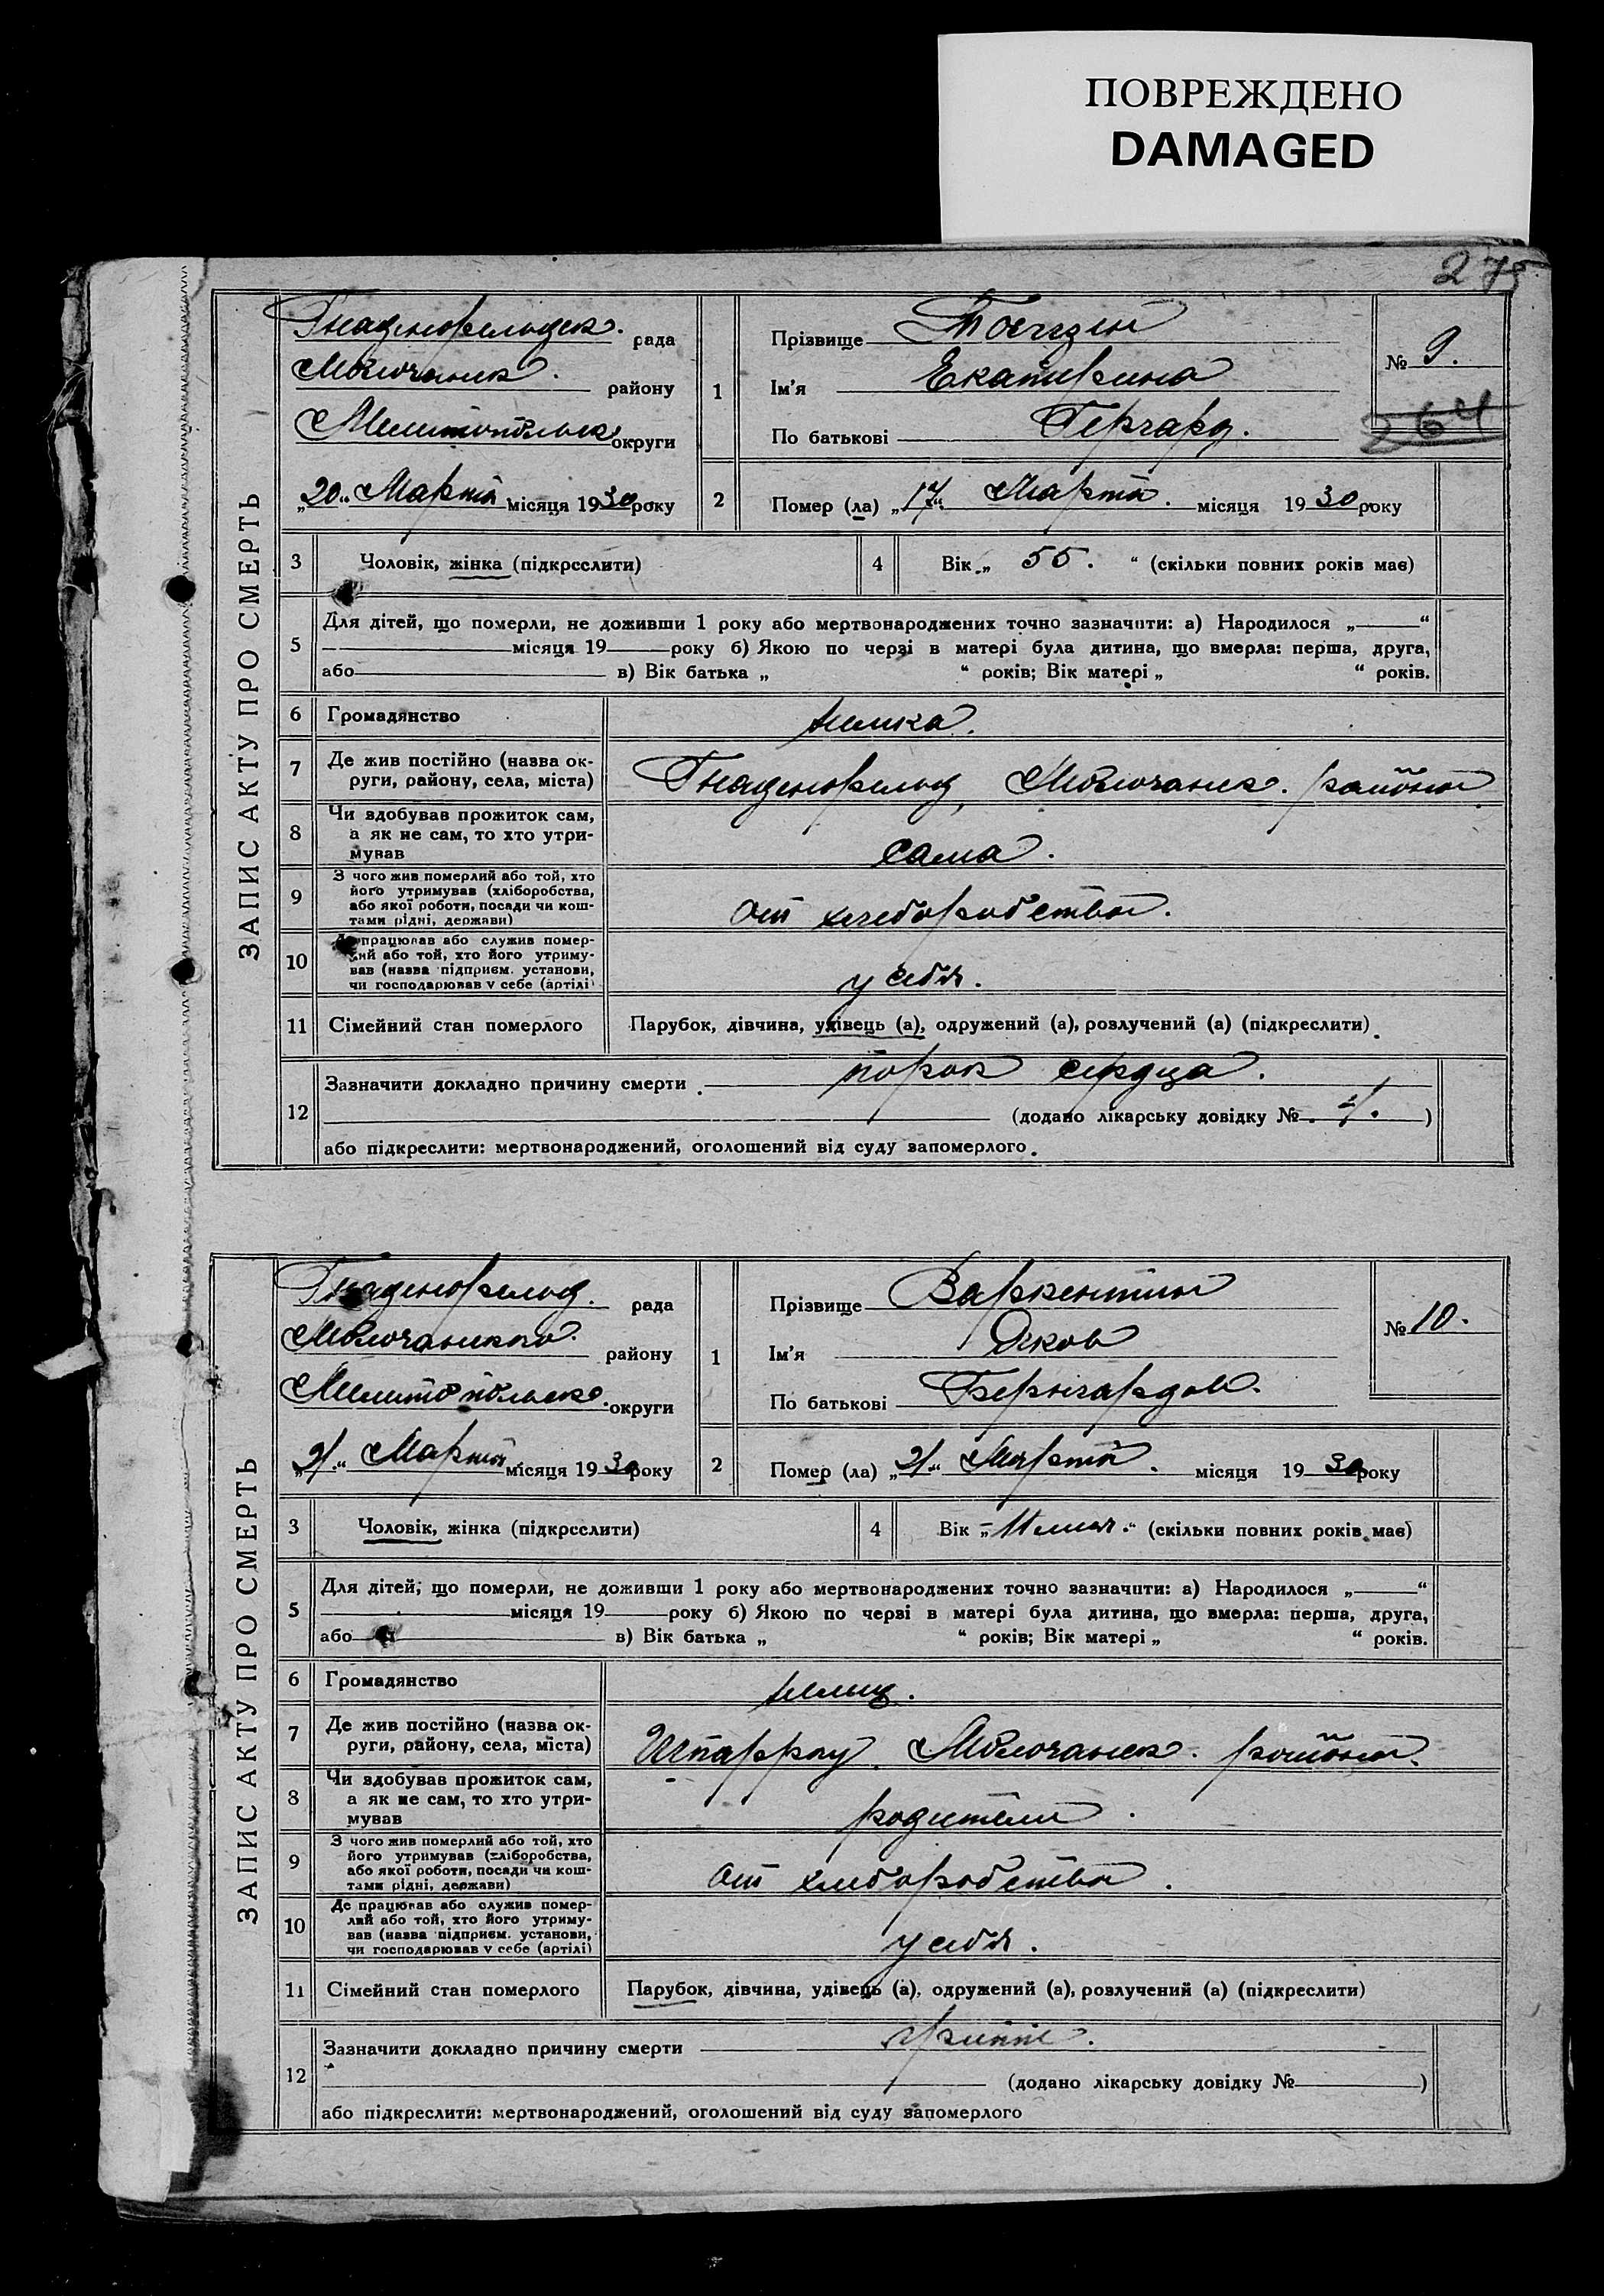 ПОВРЕЖДЕНО
DAMAGED
275
ЗАПИС АКТУ ПРО СМЕРТЬ
Гнаденфельдск. рада
Молочанск. району
Мелитопольск. округи
„20“ Марта місяця 1930 року
1
Прізвище
Ім'я Екатерина
По батькові Герхард.
№ 9.
264
2 Помер (ла) „17“ Марта. місяця 1930 року
3 Чоловік, жінка (підкреслити)
4 Вік „ 55. “ (скільки повних років має)
5 Для дітей, що померли, не доживши 1 року або мертвонароджених точно зазначити: а) Народилося „ “
місяця 19 року б) Якою по черзі в матері була дитина, що вмерла: перша, друга,
або в) Вік батька „ “ років; Вік матері „ “ років.
6 Громадянство немка.
7 Де жив постійно (назва ок-
руги, району, села, міста)
Гнаденфельд, Молочанск. района
8 Чи здобував прожиток сам,
а як не сам, то хто утри-
мував
сама.
9 З чого жив померлий або той, хто
його утримував (хліборобства,
або якої роботи, посади чи кош-
тами рідні, держави)
от хлеборобства.
10 Де працював або служив помер-
лий або той, хто його утриму-
вав (назва підприєм. установи,
чи господарював у себе (артілі)
у себя.
11 Сімейний стан померлого Парубок, дівчина, удівець (а), одружений (а), розлучений (а) (підкреслити)
12 Зазначити докладно причину смерти порок сердца.
(додано лікарську довідку № )
або підкреслити: мертвонароджений, оголошений від суду запомерлого.
ЗАПИС АКТУ ПРО СМЕРТЬ
Гнаденфельд. рада
Молочанского району
Мелитопольск. округи
„21“ Марта місяця 1930 року
1
Прізвище Варкентин
Ім'я Яков
По батькові Бернгардов.
№ 10.
2 Помер (ла) „21“ Марта. місяця 1930 року
3 Чоловік, жінка (підкреслити)
4 Вік „ “ (скільки повних років має)
5 Для дітей, що померли, не доживши 1 року або мертвонароджених точно зазначити: а) Народилося „ “
місяця 19 року б) Якою по черзі в матері була дитина, що вмерла: перша, друга,
або в) Вік батька „ “ років; Вік матері „ “ років.
6 Громадянство немец.
7 Де жив постійно (назва ок-
руги, району, села, міста)
Шпаррау Молочанск. района.
8 Чи здобував прожиток сам,
а як не сам, то хто утри-
мував
родители.
9 З чого жив померлий або той, хто
його утримував (хліборобства,
або якої роботи, посади чи кош-
тами рідні, держави)
от хлеборобства.
10 Де працював або служив помер-
лий або той, хто його утриму-
вав (назва підприєм. установи,
чи господарював у себе (артілі)
у себя.
11 Сімейний стан померлого Парубок, дівчина, удівець (а), одружений (а), розлучений (а) (підкреслити)
12 Зазначити докладно причину смерти грипп.
(додано лікарську довідку № )
або підкреслити: мертвонароджений, оголошений від суду запомерлого